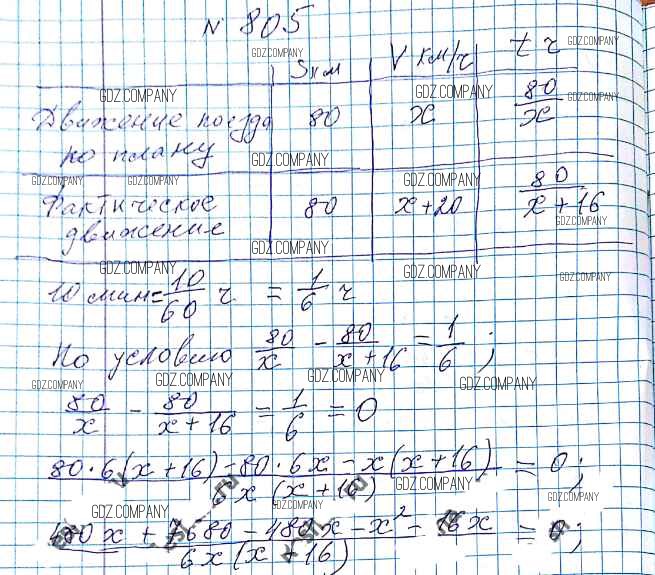 N 805
GDZ.COMPANY
GDZ.COMPANY
S км V км/ч t ч
GDZ.COMPANY GDZ.COMPANY GDZ.COMPANY
Движение поезда по плану 80 x 80/x
GDZ.COMPANY
GDZ.COMPANY GDZ.COMPANY GDZ.COMPANY
Фактическое движение 80 x+20 80/x+16
GDZ.COMPANY
GDZ.COMPANY
GDZ.COMPANY GDZ.COMPANY GDZ.COMPANY
10 мин = 10/60 ч = 1/6 ч
По условию 80/x - 80/x+16 = 1/6 ;
GDZ.COMPANY GDZ.COMPANY GDZ.COMPANY GDZ.COMPANY
80/x - 80/x+16 = 1/6 = 0
GDZ.COMPANY
80·6(x+16)-80·6x-x(x+16)/6x(x+16) = 0;
GDZ.COMPANY
GDZ.COMPANY GDZ.COMPANY
480x+7680-480x-x²-16x/6x(x 16) = 0;
GDZ.COMPANY